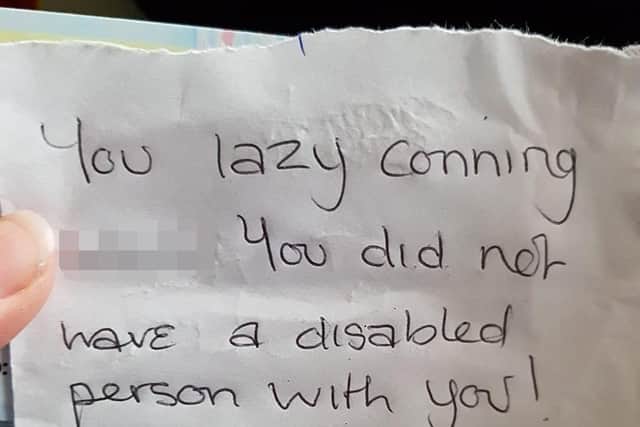 You lazy conning
You did not
have a disabled
person with you!